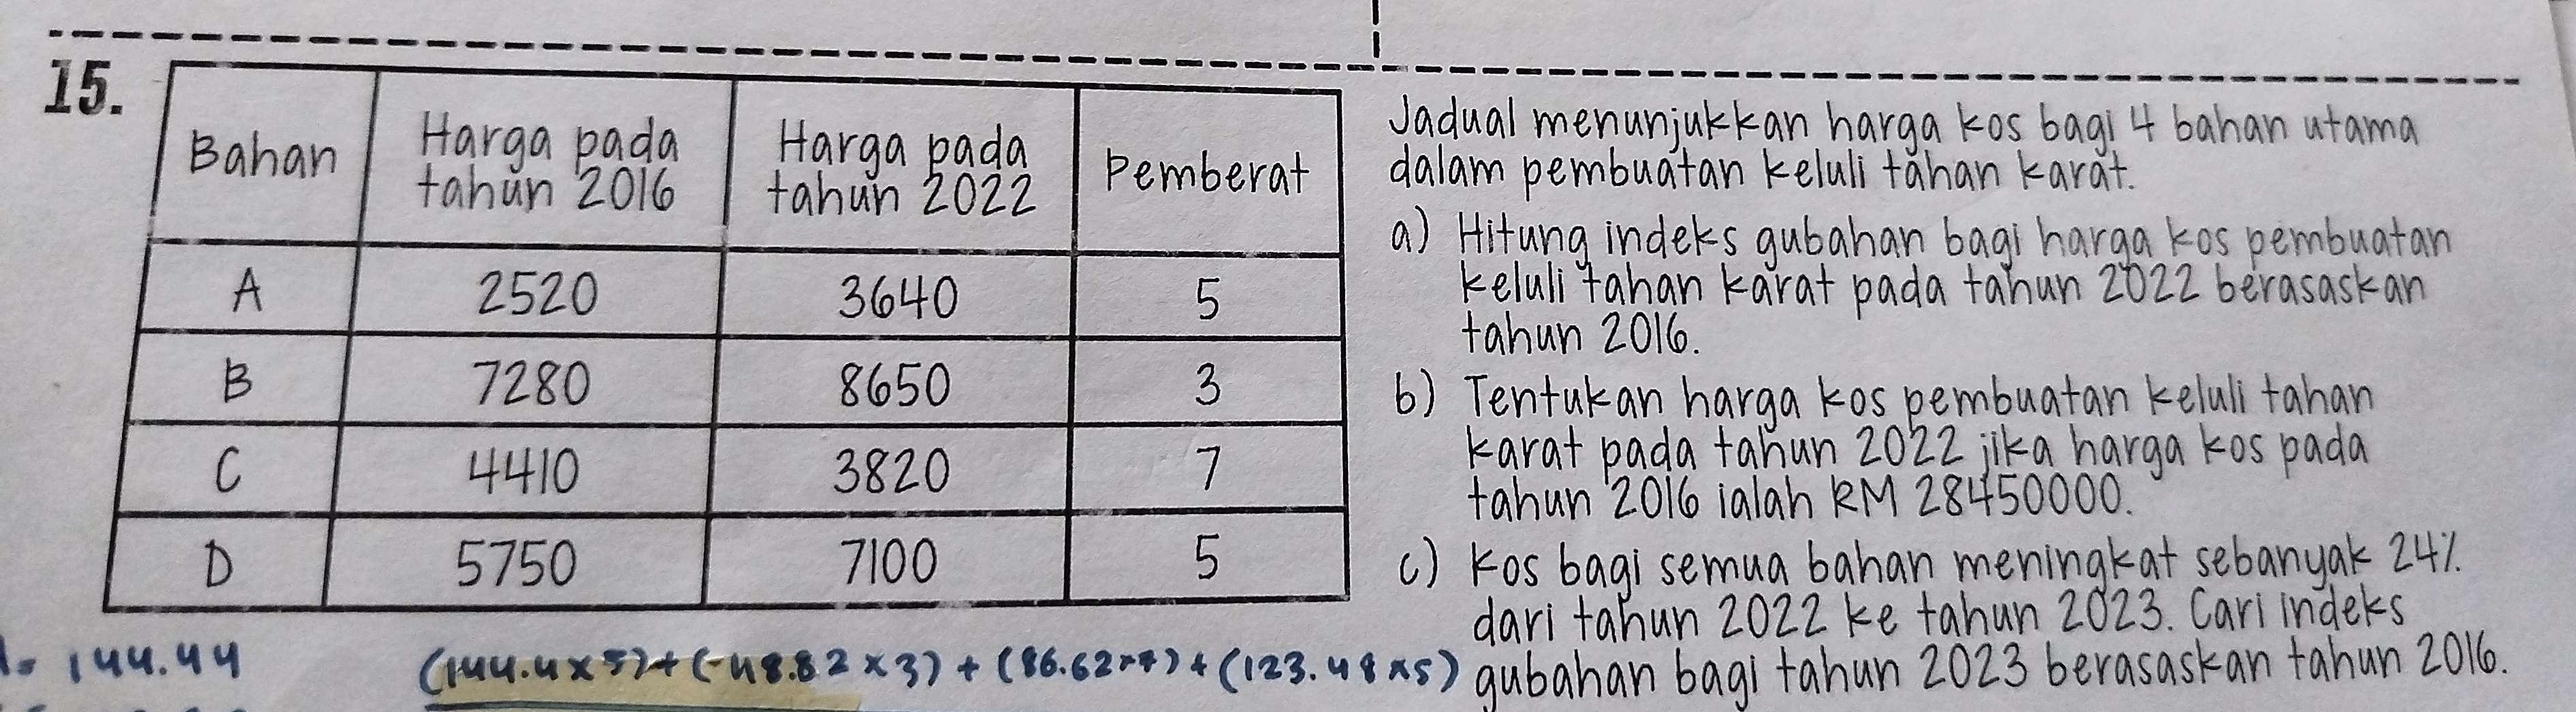 15.
Bahan | Harga pada tahun 2016 | Harga pada tahun 2022 | Pemberat
A | 2520 | 3640 | 5
B | 7280 | 8650 | 3
C | 4410 | 3820 | 7
D | 5750 | 7100 | 5
Jadual menunjukkan harga kos bagi 4 bahan utama
dalam pembuatan keluli tahan karat.
a) Hitung indeks gubahan bagi harga kos pembuatan
keluli tahan karat pada tahun 2022 berasaskan
tahun 2016.
b) Tentukan harga kos pembuatan keluli tahan
karat pada tahun 2022 jika harga kos pada
tahun 2016 ialah RM 28450000.
c) Kos bagi semua bahan meningkat sebanyak 24%
dari tahun 2022 ke tahun 2023. Cari indeks
gubahan bagi tahun 2023 berasaskan tahun 2016.
= 144.44
(144.4×5)+(-48.82×3)+(86.62×7)+(123.48×5)